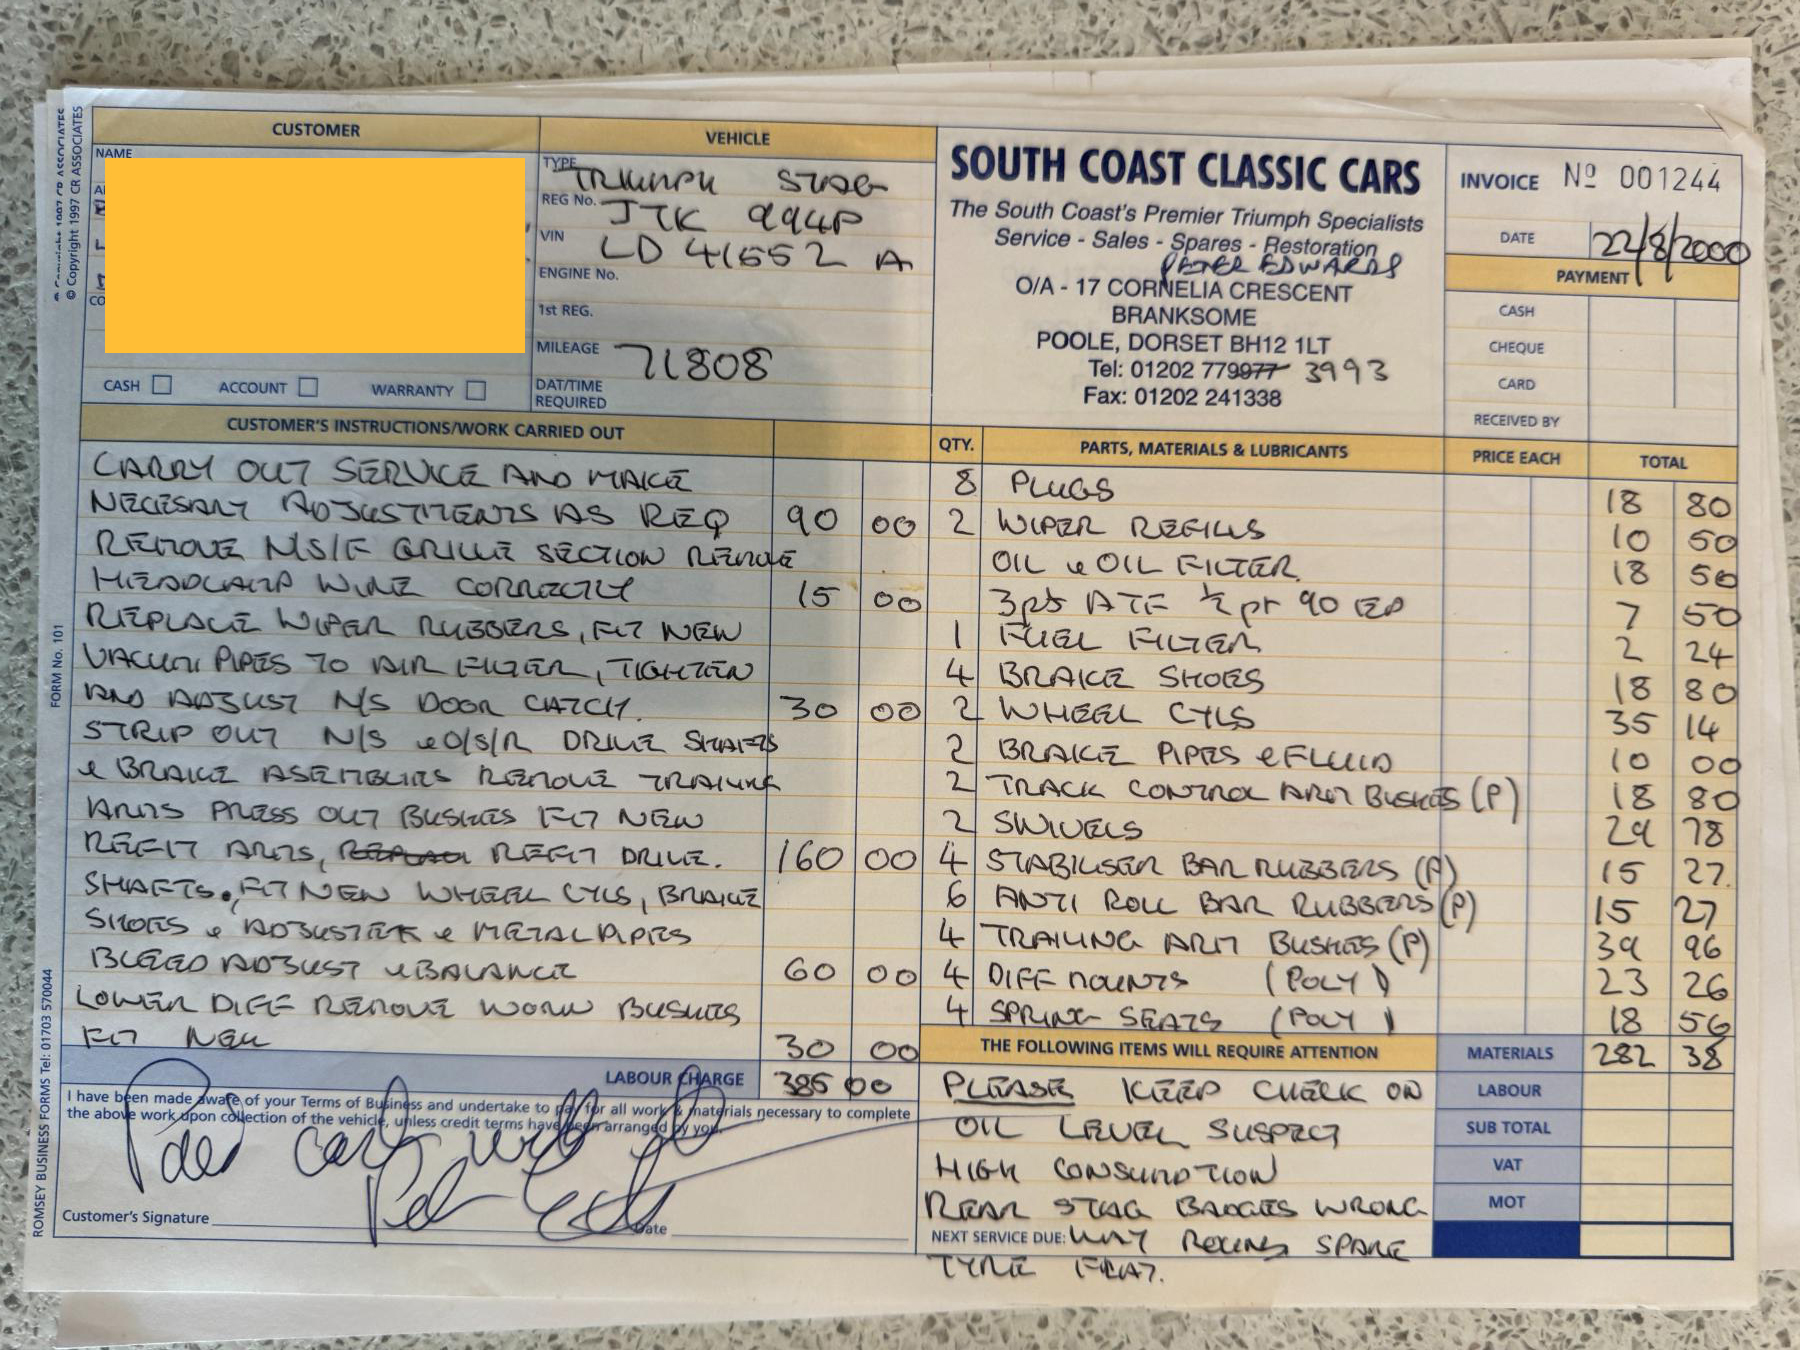 CUSTOMER
NAME
CASH ACCOUNT WARRANTY
VEHICLE
TYPE TRIUMPH STAG
REG No. JTK 994P
VIN LD 41552 A
ENGINE No.
1st REG.
MILEAGE 71808
DAT/TIME
REQUIRED
SOUTH COAST CLASSIC CARS
The South Coast's Premier Triumph Specialists
Service - Sales - Spares - Restoration
PETER EDWARDS
O/A - 17 CORNELIA CRESCENT
BRANKSOME
POOLE, DORSET BH12 1LT
Tel: 01202 779977 3993
Fax: 01202 241338
INVOICE Nº 001244
DATE 22/8/2000
PAYMENT
CASH
CHEQUE
CARD
RECEIVED BY
CUSTOMER'S INSTRUCTIONS/WORK CARRIED OUT
CARRY OUT SERVICE AND MAKE
NECESARY ADJUSTMENTS AS REQ 90 00
REMOVE N/S/F GRILLE SECTION REMOVE
HEADLAMP WIRE CORRECTLY 15 00
REPLACE WIPER RUBBERS, FIT NEW
VACUM PIPES TO AIR FILTER, TIGHTEN
AND ADJUST N/S DOOR CATCH. 30 00
STRIP OUT N/S & O/S/R DRIVE SHAFTS
& BRAKE ASEMBLIES REMOVE TRAILING
ARMS PRESS OUT BUSHES FIT NEW
REFIT ARMS, REFIT DRIVE. 160 00
SHAFTS. FIT NEW WHEEL CYLS, BRAKE
SHOES & ADJUSTER & METAL PIPES
BLEED ADJUST & BALANCE 60 00
LOWER DIFF REMOVE WORN BUSHES
FIT NEW 30 00
LABOUR CHARGE 385 00
I have been made aware of your Terms of Business and undertake to pay for all work & materials necessary to complete
the above work upon collection of the vehicle, unless credit terms have been arranged by you.
Customer's Signature Date
QTY. PARTS, MATERIALS & LUBRICANTS PRICE EACH TOTAL
8 PLUGS 18 80
2 WIPER REFILLS 10 50
OIL & OIL FILTER. 18 50
3pts ATF ½ pt 90 EP 7 50
1 FUEL FILTER 2 24
4 BRAKE SHOES 18 80
2 WHEEL CYLS 35 14
2 BRAKE PIPES & FLUID 10 00
2 TRACK CONTROL ARM BUSHES (P) 18 80
2 SWIVELS 29 78
4 STABILISER BAR RUBBERS (P) 15 27.
6 ANTI ROLL BAR RUBBERS (P) 15 27
4 TRAILING ARM BUSHES (P) 39 96
4 DIFF MOUNTS (POLY) 23 26
4 SPRING SEATS (POLY) 18 56
THE FOLLOWING ITEMS WILL REQUIRE ATTENTION
PLEASE KEEP CHECK ON
OIL LEVEL SUSPECT
HIGH CONSUMPTION
REAR STAG BADGES WRONG
NEXT SERVICE DUE: WAY ROUND SPARE
TYRE FLAT.
MATERIALS 282 38
LABOUR
SUB TOTAL
VAT
MOT
© Copyright 1997 CR ASSOCIATES
© Copyright 1997 CR ASSOCIATES
FORM No. 101
ROMSEY BUSINESS FORMS Tel: 01703 570044